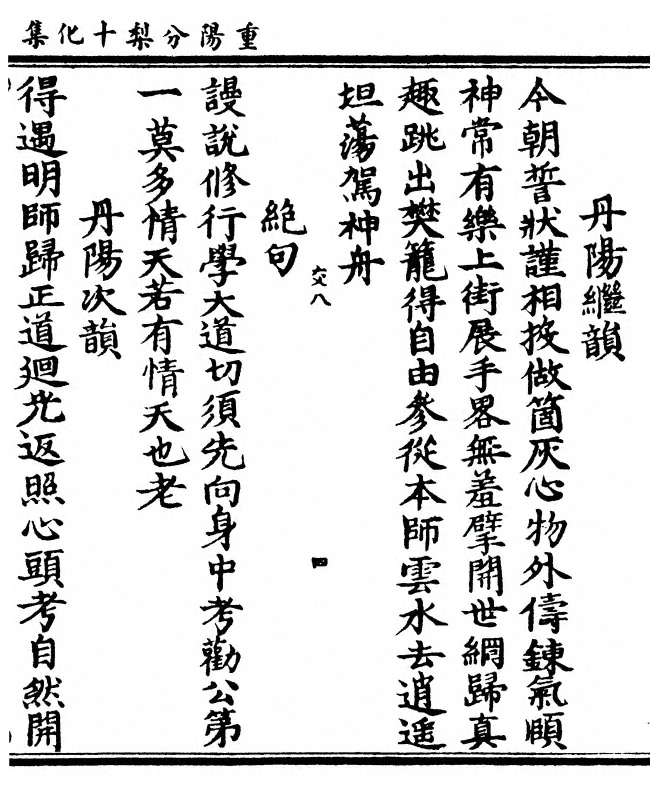 重陽分梨十化集
丹陽繼韻
今朝誓狀謹相按做箇灰心物外儔鍊氣頤
神常有樂上街展手畧無羞擘開世網歸真
趣跳出樊籠得自由參從本師雲水去逍遥
坦蕩駕神舟
交八
四
絕句
謾說修行學大道切須先向身中考勸公第
一莫多情天若有情天也老
丹陽次韻
得遇明師歸正道廻光返照心頭考自然開